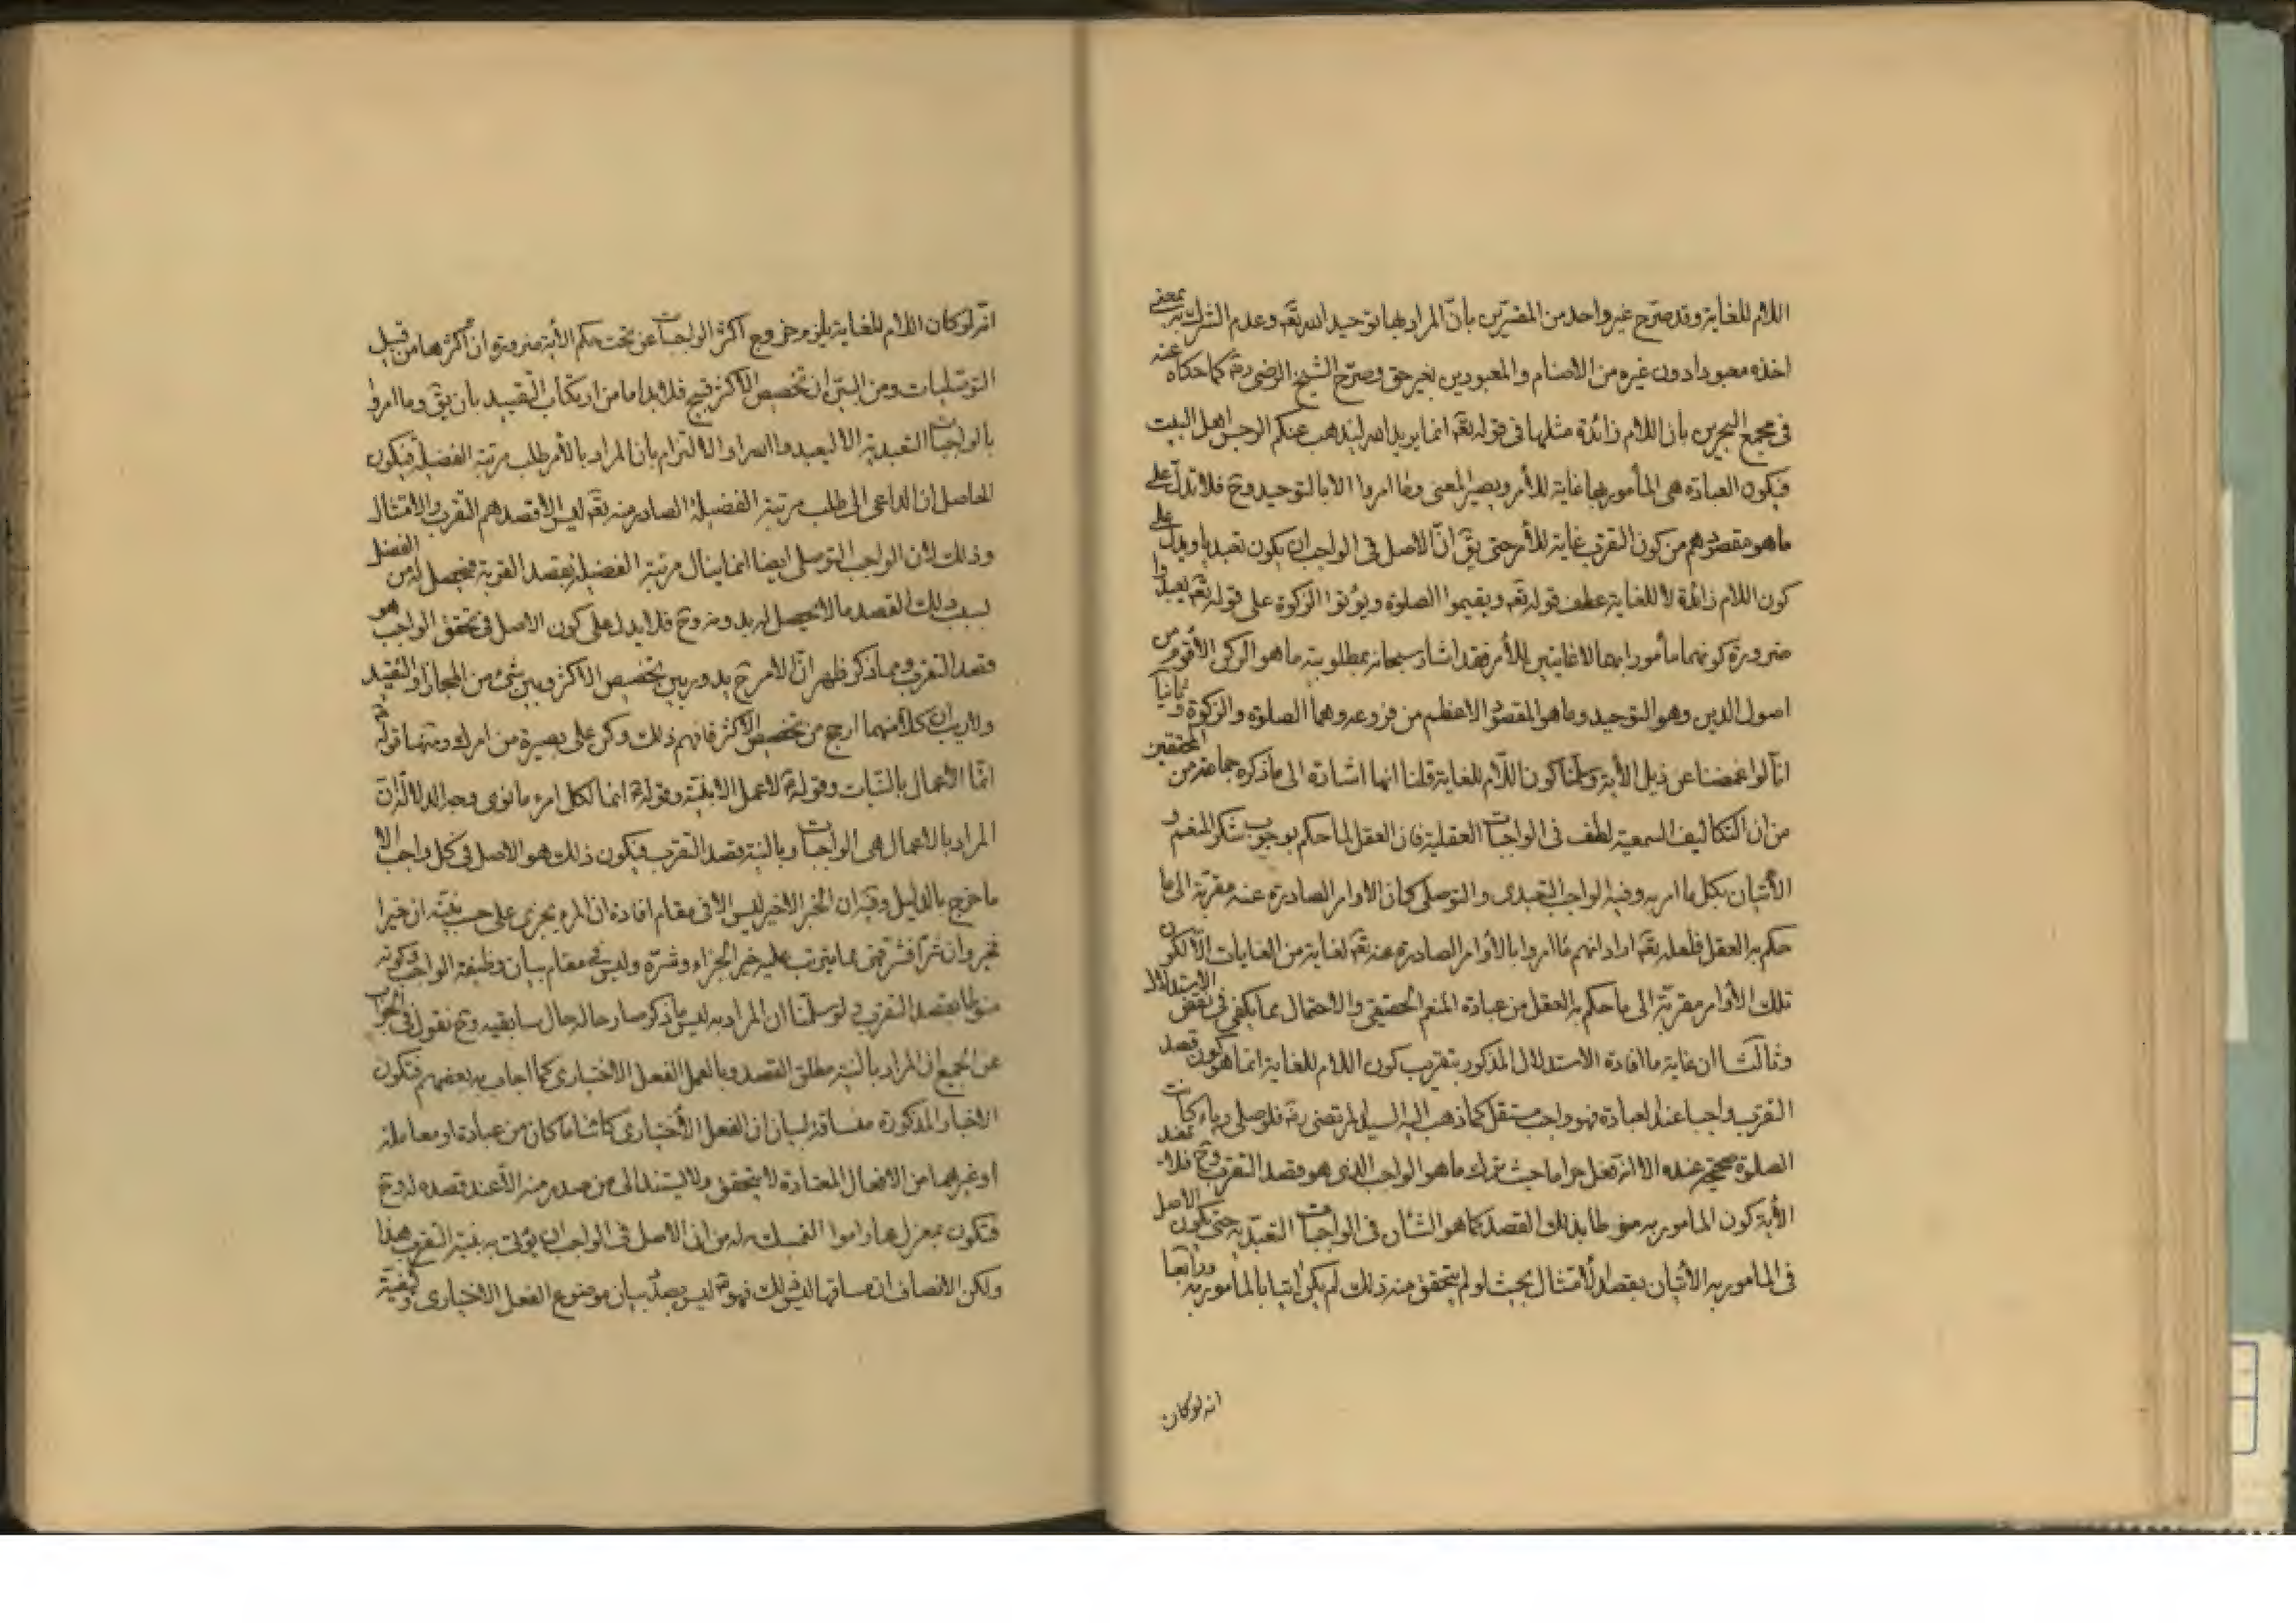 اللام للغاية وقد صرّح غير واحد من المفسّرين بأنّ المراد بها توحيد الله تعّه وعدم الشرك به بمعنى
اخذه معبودا دون غيره من الاصنام و المعبودين بغير حق وصرّح الشيخ الرضى ره كما حكاه عنه
فى مجمع البحرين بان اللام زائدة مثلها فى قوله تعّه انما يريد الله ليذهب عنكم الرجس اهل البيت
فيكون العبادة هى المأمور بها غاية للأمر ويصير المعنى وما امروا الا بالتوحيد وح فلا تدلّ على
ما هو مقصودهم من كون التقرب غاية للأمر حتى يقّ انّ الاصل فى الواجب ان يكون تعبديا ويدل على
كون اللام زائدة لا للغاية عطف قوله تعّه ويقيموا الصلوة ويؤتوا الزكوة على قوله تعّه ليعبدوا
ضرورة كونهما مأمورا بهما لا غايتين للأمر فقد اشار سبحانه بمطلوبية ما هو الركن الأقوم من
اصول الدين وهو التوحيد وما هو المقصود الاعظم من فروعه وهما الصلوة والزكوة وثانيا
انّا لو اغمضنا عن ذيل الأية وسلّمنا كون اللّام للغاية قلنا انها اشارة الى ما ذكره جماعة من المحققين
من ان التكاليف السمعية لطف فى الواجبات العقلية فان العقل لما حكم بوجوب شكر المنعم و
الأتيان بكل ما امر به وفيه الواجب التعبدى والتوصلى كان الاوامر الصادرة عنه مقربة الى ما
حكم به العقل فلعله تعّه اراد انهم ما امروا بالأوامر الصادرة عنه تعّه لغاية من الغايات الّا لكون
تلك الأوامر مقربّة الى ما حكم به العقل من عبادة المنعم الحقيقى والاحتمال مما يكفى فى نقض الاستدلال
وثالثا ان غاية ما افادة الاستدلال المذكور بتقريب كون اللام للغاية انما هو كون قصد
التقرب واجبا عند العبادة فهو واجب مستقل كما ذهب اليه السيد المرتضى ره فلو صلى رياء كانت
الصلوة صحيحة عنده الا انه فعل حراما حيث ترك ما هو الواجب الذى هو قصد التقرب وح فلا تفيد
الأية كون المامور به منوطا بذلك القصد كما هو الشأن فى الواجبات التعبّدية حتى يكون الاصل
فى المامور به الأتيان بقصد الأمتثال بحيث لو لم يتحقق منه ذلك لم يكن اتيا بالمامور به ورابعا
انه لو كان
انّه لو كان اللام للغاية يلزم خروج اكثر الواجبات عن تحت حكم الأية ضرورة انّ اكثرها من قبيل
التوصّليات ومن البيّن ان تخصيص الاكثر قبيح فلا بد اما من ارتكاب التقييد بان يقّ وما امروا
بالواجبات التعبدية الا ليعبدوا الله او الالتزام بان المراد بالأمر طلب مرتبة الفضيلة فيكون
الحاصل ان الداعى الى طلب مرتبة الفضيلة الصادر منه تعّه ليس الا قصدهم التقرب والامتثال
وذلك لأن الواجب التوصلى ايضا انما ينال مرتبة الفضيلة بقصد القربة فيحصل له من الفضل
بسبب ذلك القصد ما لا يحصل له بدونه وح فلا يدل على كون الاصل فى تحقق الواجب هو
قصد التقرب ومما ذكر ظهر انّ الامر ح يدور بين تخصيص الاكثر وبين شئ من المجاز او التقييد
ولا ريب ان كلا منهما ارجح من تخصيص الاكثر فافهم ذلك وكن على بصيرة من امرك ومنها قوله ع
انّما الأعمال بالنيّات وقوله ع لا عمل الا بنيّة وقوله ع انما لكل امرء ما نوى وجه الدلالة انّ
المراد بالاعمال هى الواجبات وبالنية قصد التقرب فيكون ذلك هو الاصل فى كل واجب الا
ما خرج بالدليل وفيه ان الخبر الاخير ليس الا فى مقام افادة ان المرء يجزى على حسب نيّته ان خيرا
فخير وان شرّا فشر فهى مما يترتب عليه خير الجزاء وشرّه وليس فى مقام بيان وظيفة الواجب وكونه
منوطا بقصد التقرب ولو سلّمنا ان المراد به ليس ما ذكر صار حاله حال سابقيه وح نقول فى الجواب
عن الجميع ان المراد بالنية مطلق القصد وبالعمل الفعل الاختيارى كما اجاب به بعضهم فتكون
الاخبار المذكورة مساقة لبيان ان الفعل الأختيارى كائنا ما كان من عبادة او معاملة
او غيرهما من الافعال المعتادة لا يتحقق ولا يستند الى من صدر منه الّا عند قصده له وح
فتكون بمعزل عما راموا التمسك به له من انّ الاصل فى الواجب ان يؤتى به بنية التقرب هذا
ولكن الانصاف ان مساقها ليس ذلك فهو ع ليس بصدد بيان موضوع الفعل الاختيارى وكيفيّة